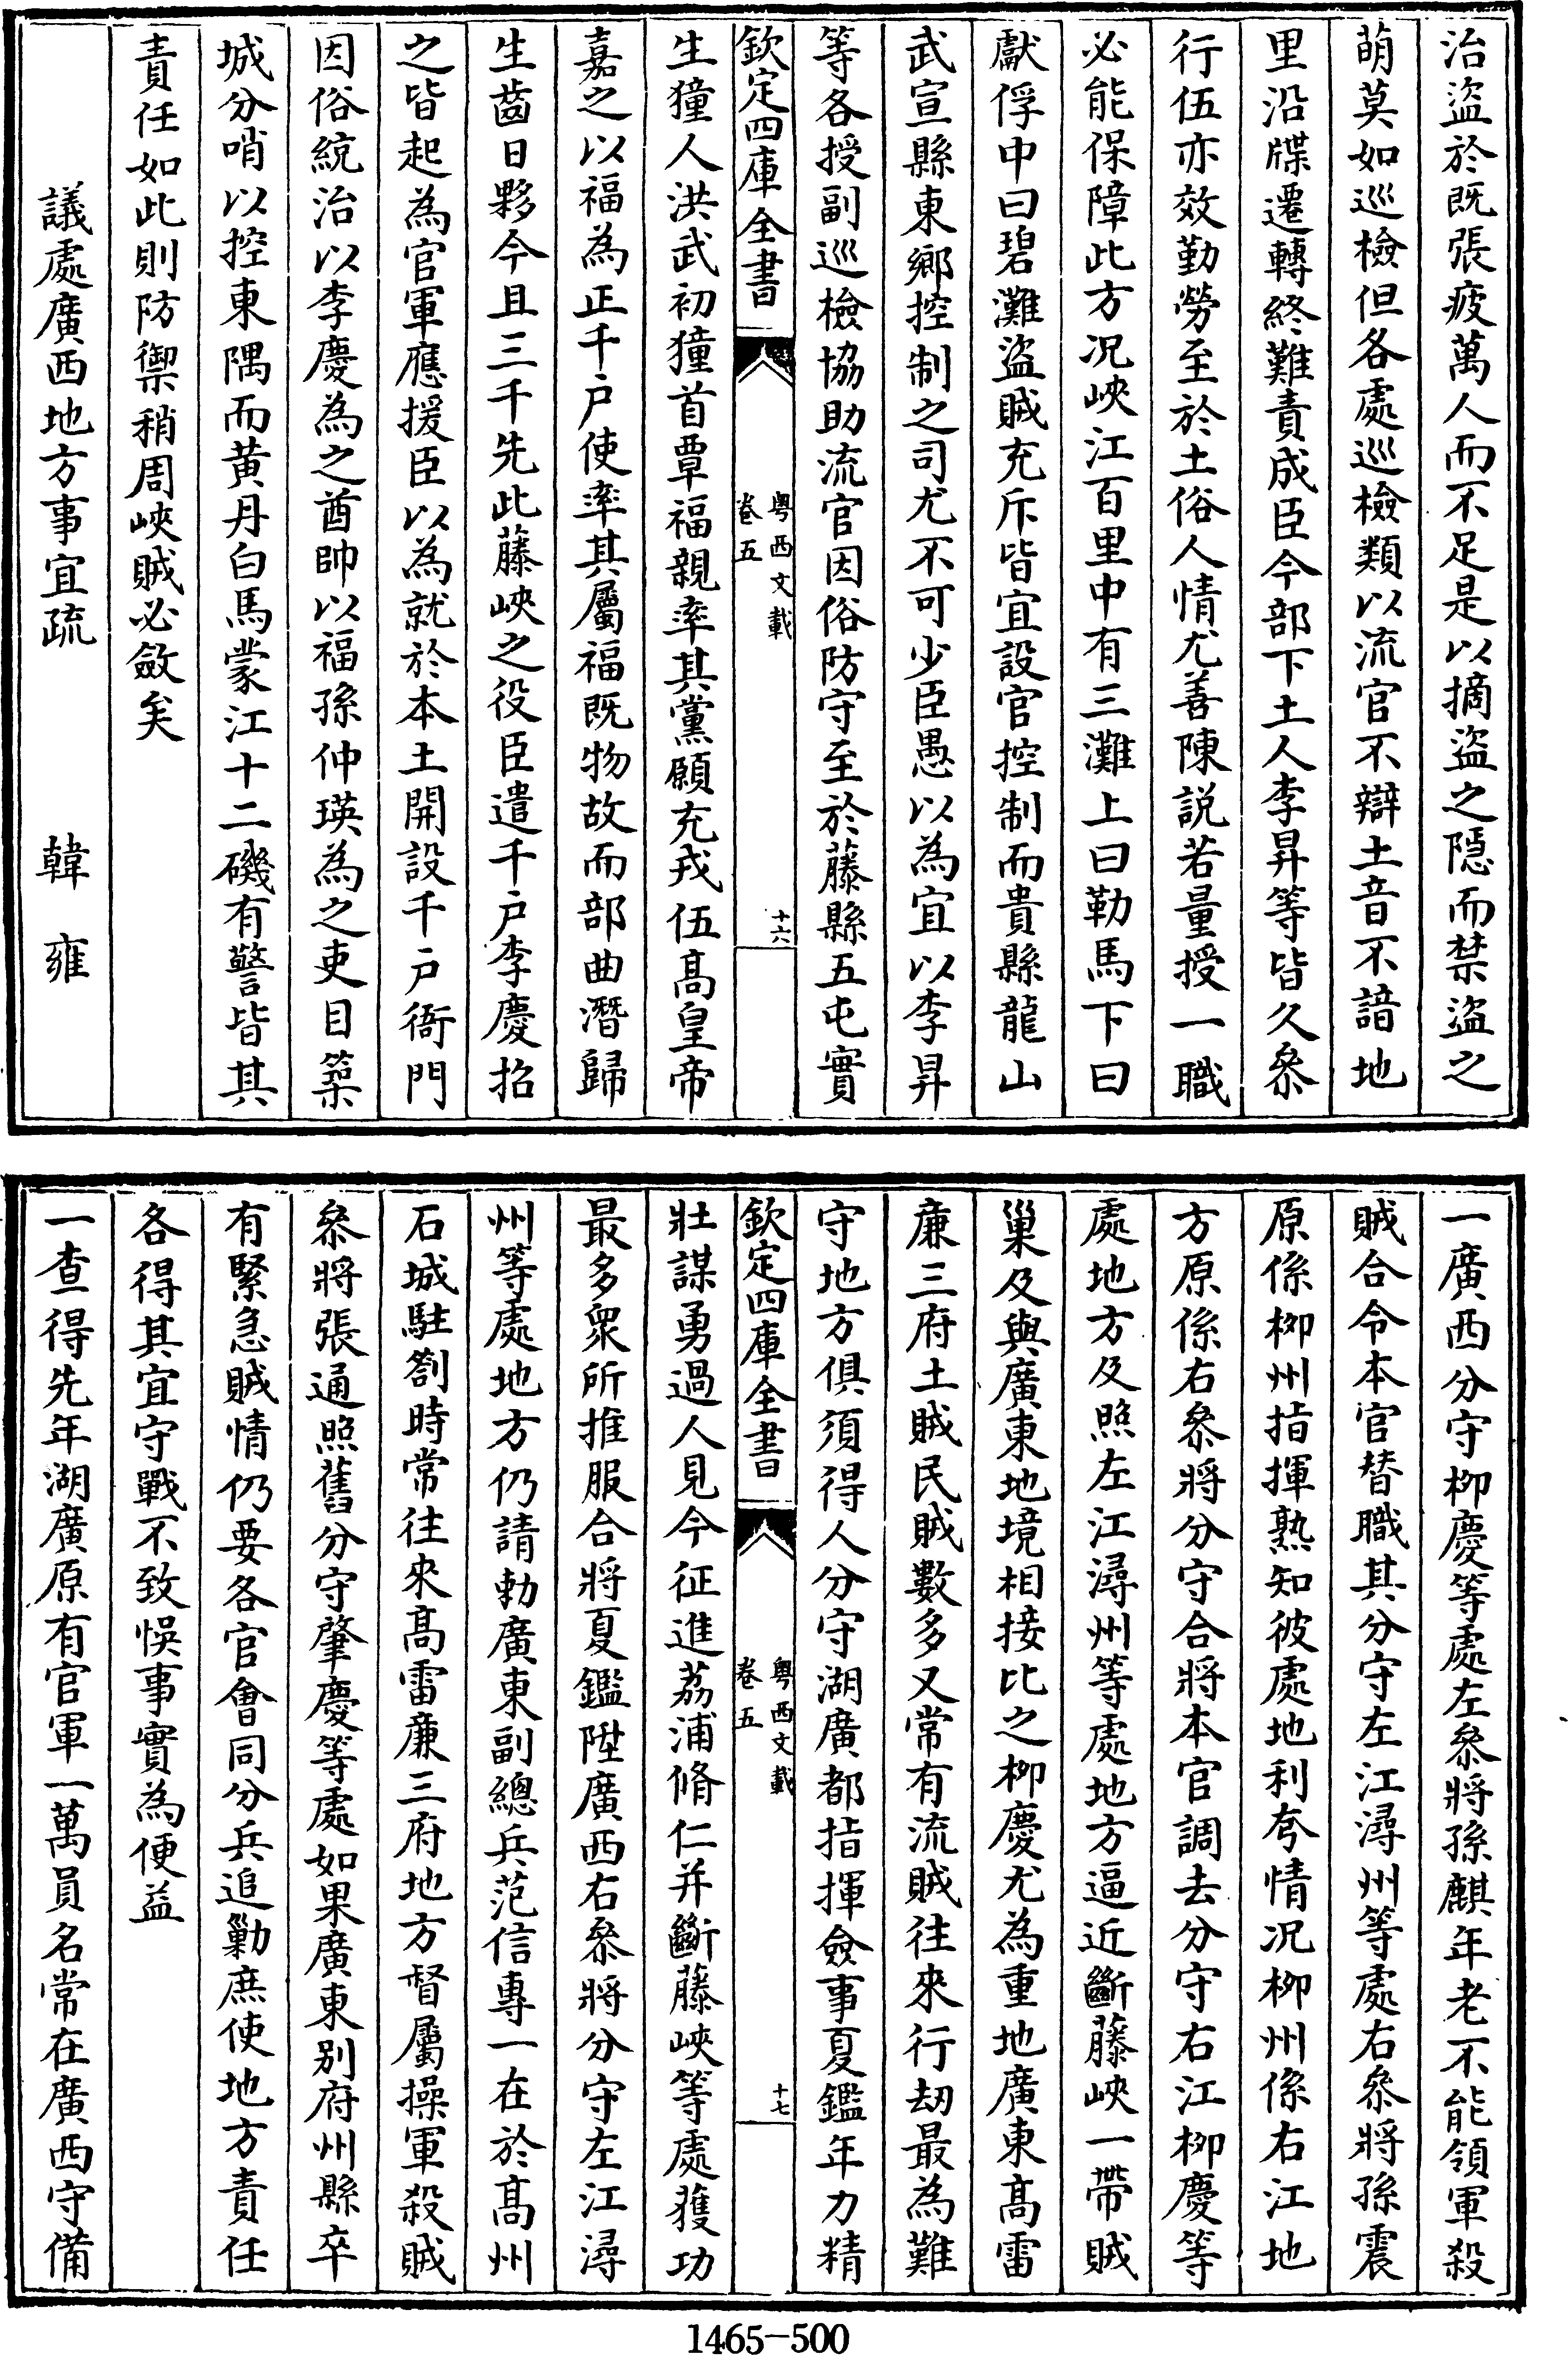 治盜於既張疲萬人而不足是以摘盜之隱而禁盜之
萌莫如巡檢但各處巡檢類以流官不辯土音不諳地
里沿牒遷轉終難責成臣今部下土人李昇等皆久叅
行伍亦效勤勞至於土俗人情尤善陳説若量授一職
必能保障此方况峽江百里中有三灘上曰勒馬下曰
獻俘中曰碧灘盜賊充斥皆宜設官控制而貴縣龍山
武宣縣東鄉控制之司尤不可少臣愚以為宜以李昇
等各授副巡檢協助流官因俗防守至於藤縣五屯實
欽定四庫全書
粤西文載
卷五
十六
生獞人洪武初獞首覃福親率其黨願充戎伍髙皇帝
嘉之以福為正千户使率其屬福既物故而部曲潛歸
生齒日夥今且三千先此藤峽之役臣遣千户李慶招
之皆起為官軍應援臣以為就於本土開設千户衙門
因俗統治以李慶為之酋帥以福孫仲瑛為之吏目築
城分哨以控東隅而黄丹白馬蒙江十二磯有警皆其
責任如此則防禦稍周峽賊必斂矣
議處廣西地方事宜疏　韓雍
一廣西分守栁慶等處左叅將孫麒年老不能領軍殺
賊合令本官替職其分守左江潯州等處右叅將孫震
原係栁州指揮熟知彼處地利夸情况栁州係右江地
方原係右叅將分守合將本官調去分守右江栁慶等
處地方及照左江潯州等處地方逼近斷藤峽一帶賊
巢及與廣東地境相接比之栁慶尤為重地廣東髙雷
亷三府土賊民賊數多又常有流賊往來行刼最為難
守地方俱須得人分守湖廣都指揮僉事夏鑑年力精
欽定四庫全書
粤西文載
卷五
十七
壯謀勇過人見今征進荔浦脩仁并斷藤峽等處獲功
最多衆所推服合將夏鑑陞廣西右叅將分守左江潯
州等處地方仍請勅廣東副總兵范信專一在於髙州
石城駐劄時常往來髙雷亷三府地方督屬操軍殺賊
叅將張通照舊分守肇慶等處如果廣東别府州縣卒
有緊急賊情仍要各官會同分兵追勦庶使地方責任
各得其宜守戰不致悞事實為便益
一查得先年湖廣原有官軍一萬員名常在廣西守備
1465-500